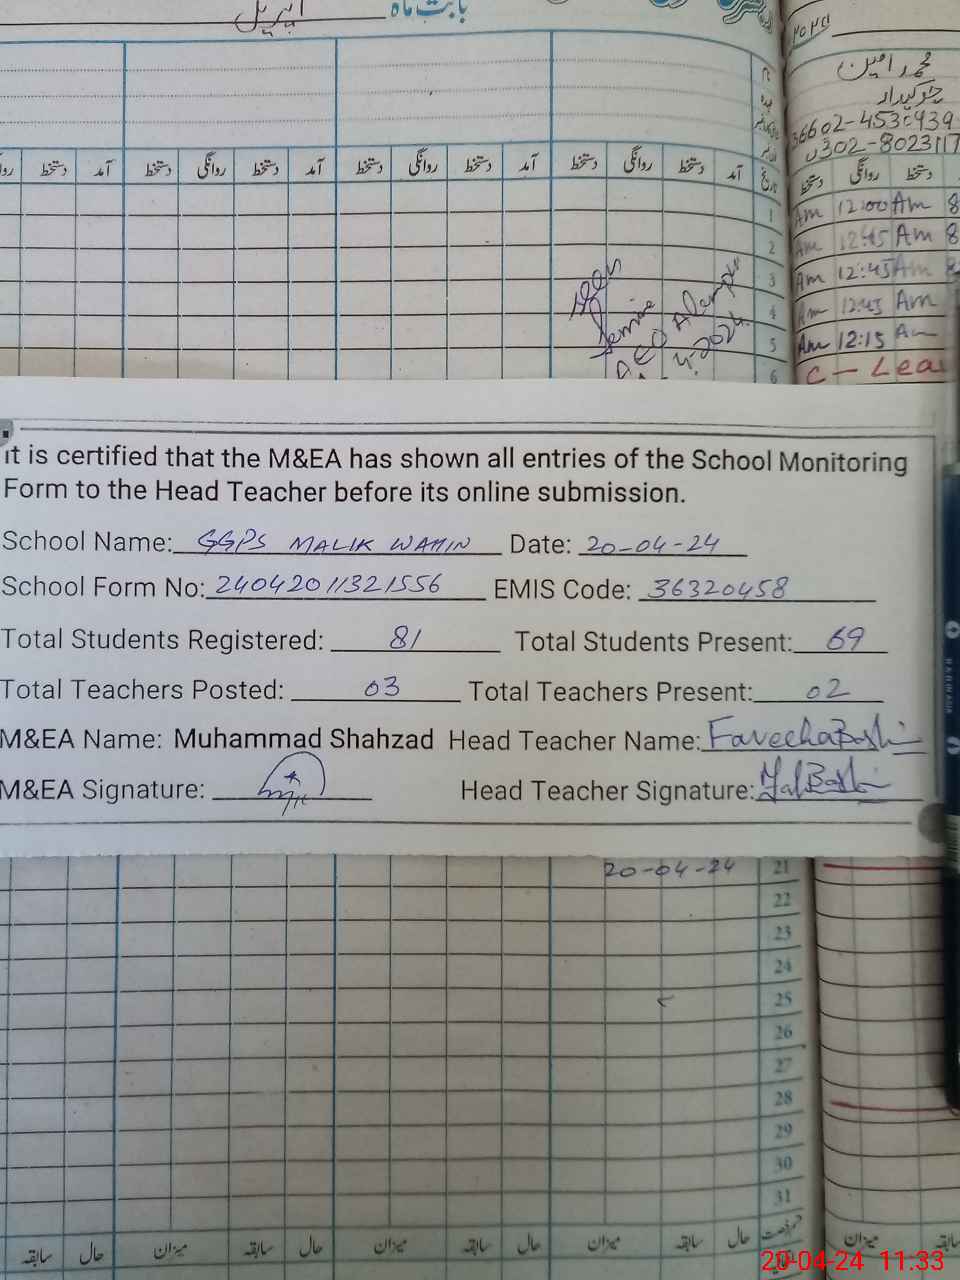 بابت ماہ اپریل
۲۰۲۴
محمد امین
چوکیدار
0302-8023117
آمد دستخط روانگی دستخط آمد دستخط روانگی دستخط آمد دستخط
دستخط روانگی دستخط
1
2
3
4
5
6
Am 12:00 Am 8
Am 12:45 Am 8
Am 12:45 Am 8
Am 12:45 Am
Am 12:15 Am
C - Lea
Seen
AEO
4-2024
It is certified that the M&EA has shown all entries of the School Monitoring
Form to the Head Teacher before its online submission.
School Name: GGPS MALIK WAHIN Date: 20-04-24
School Form No: 24042011321556 EMIS Code: 36320458
Total Students Registered: 81 Total Students Present: 69
Total Teachers Posted: 03 Total Teachers Present: 02
M&EA Name: Muhammad Shahzad Head Teacher Name: Fareeha Bashir
M&EA Signature: Head Teacher Signature:
20-04-24 21
22
23
24
25
26
27
28
29
30
31
حال سابقہ میزان حال سابقہ میزان حال سابقہ
میزان
20-04-24 11:33